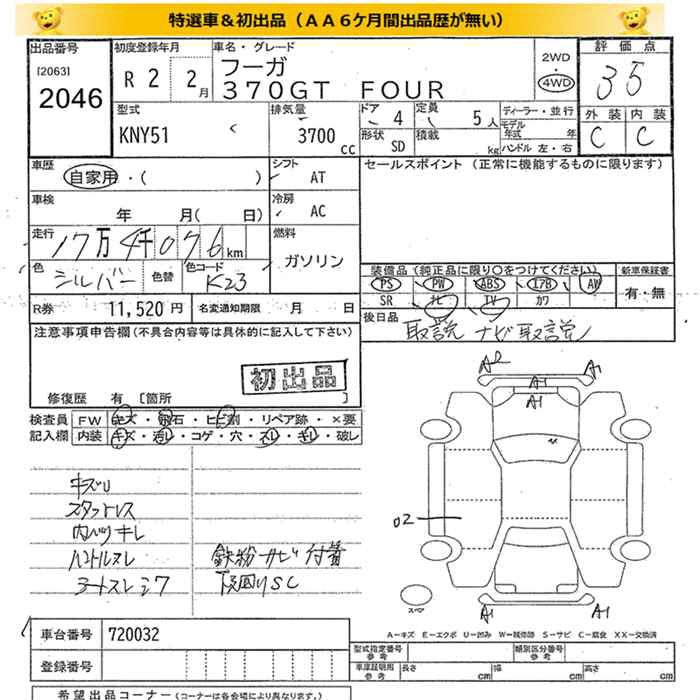 特選車＆初出品（ＡＡ６ケ月間出品歴が無い）
出品番号 初度登録年月 車名・グレード 評価点
[2063] 2046
R 2 2月 フーガ 2WD 4WD 35
３７０ＧＴ　ＦＯＵＲ
型式 排気量 ドア 4 定員 5人 ディーラー・並行 外装 内装
KNY51 3700cc 形状 SD 積載 kg モデル年式 年 C C
ハンドル 左・右
車歴 自家用・( ) シフト AT セールスポイント（正常に機能するものに限ります）
車検 年 月( 日) 冷房 AC
走行 17万4千076km 燃料 ガソリン
色 シルバー 色替 色コード K23 装備品（純正品に限り○をつけてください） 新車保証書
PS PW ABS エアB AW 有・無
SR ナビ TV カワ
R券 11,520円 名変通知期限 月 日 後日品 取説 ナビ取説
注意事項申告欄（不具合内容等は具体的に記入して下さい）
初出品
修復歴 有 [箇所 ]
検査員 FW キズ・飛石・ヒビ割・リペア跡・×要
記入欄 内装 キズ・汚レ・コゲ・穴・スレ・キレ・破レ
A2 A1
A1
A1
キズU
スタットレス
内ハリキレ
ハンドルスレ 鉄粉サビ付着
シートスレシワ 下廻りSC
02
スペア
A1 A1
A－キズ E－エクボ U－凹み W－補修跡 S－サビ C－腐食 XX－交換済
車台番号 720032
登録番号
型式指定番号 参考 類別区分番号 参考
車庫証明用 参考 長さ cm 幅 cm 高さ cm
希望出品コーナー（コーナーは各会場により異なります。）